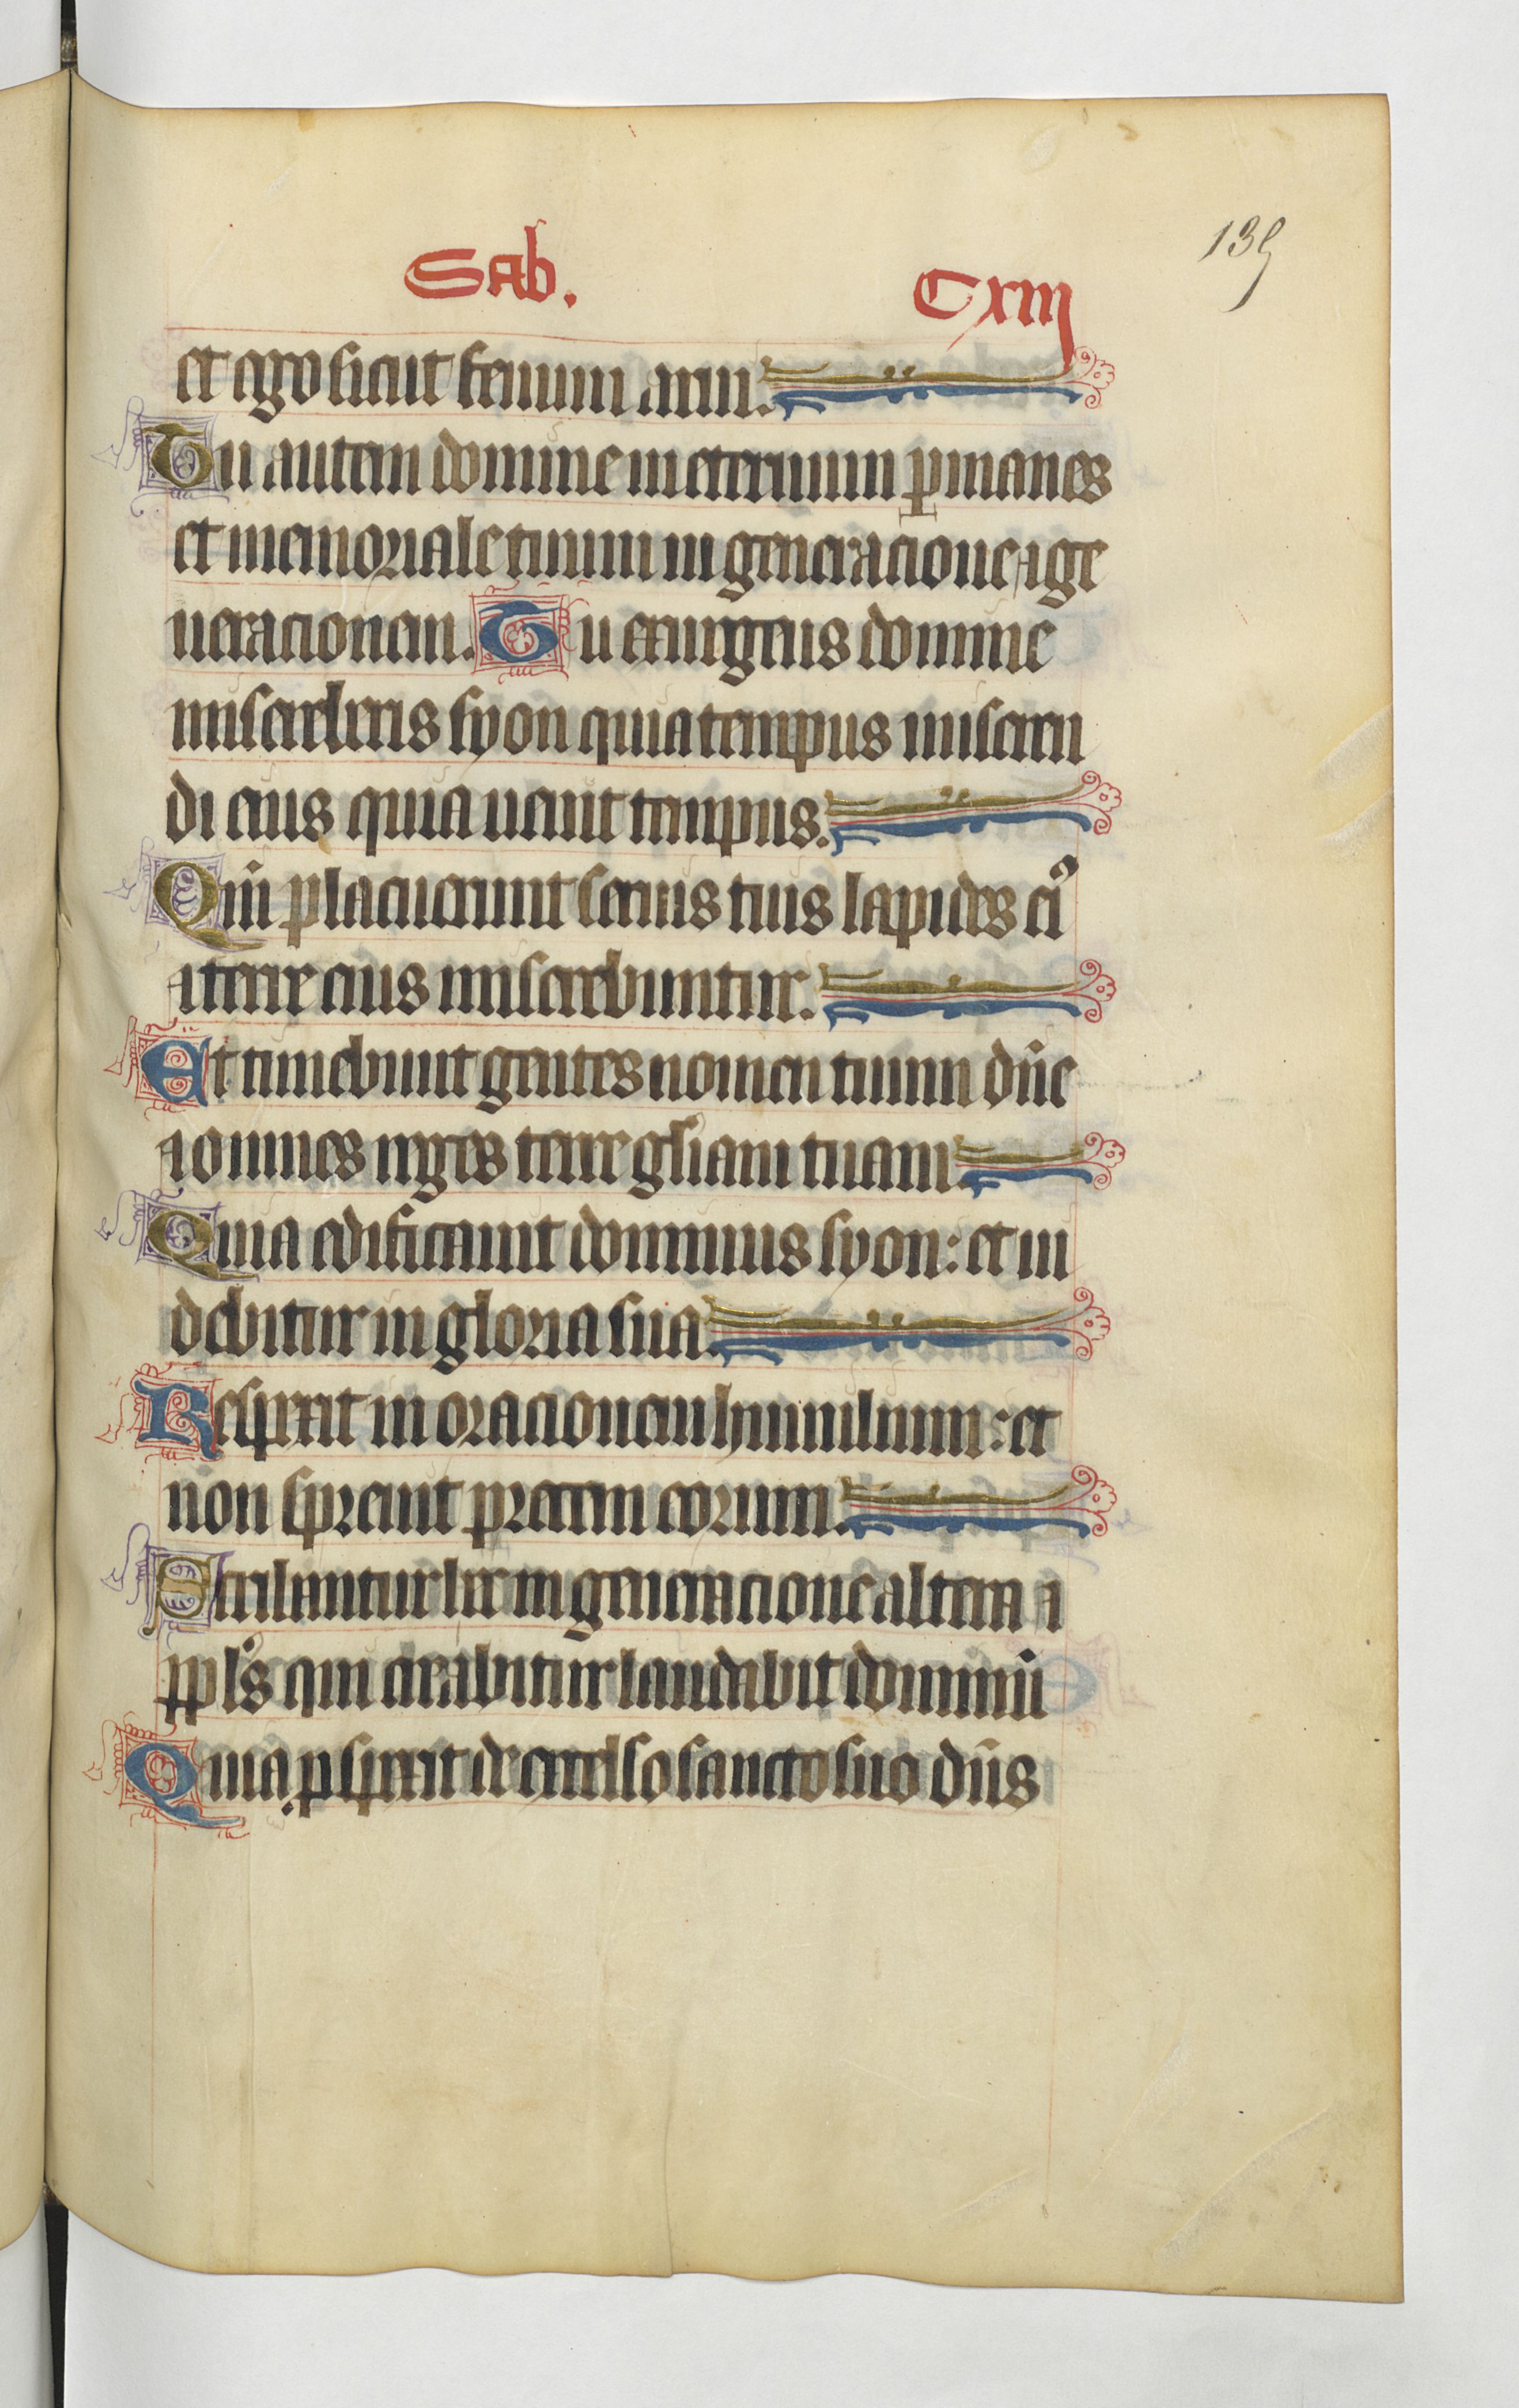 Sab. Cxiij
139
et ego sicut fenum arui.
Tu autem domine in eternum ꝑmanes
et memoriale tuum in generacione ⁊ ge
neracionem. Tu exurgens domine
misereberis syon quia tempus miseren
di eius quia uenit tempus.
Qm̄ placuerunt seruis tuis lapides ei⁹
⁊ terre eius miserebuntur.
Et timebunt gentes nomen tuum dn̄e
⁊ omnes reges terre gl̄iam tuam.
Quia edificauit dominus syon: et ui
debitur in gloria sua.
Respexit in oracionem humilium: et
non spreuit precem eorum.
Scribantur hec in generacione altera ⁊
ppl̄s qui creabitur laudabit dominū
Quia ꝓspexit de excelso sancto suo dn̄s